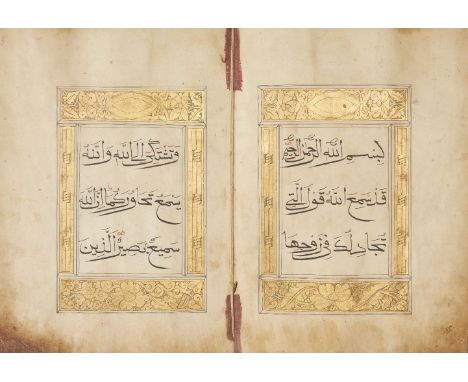 بسم الله الرحمن الرحيم
قد سمع الله قول التي
تجادلك في زوجها
وتشتكي الى الله والله
يسمع تحاوركما ان الله
سميع بصير الذين